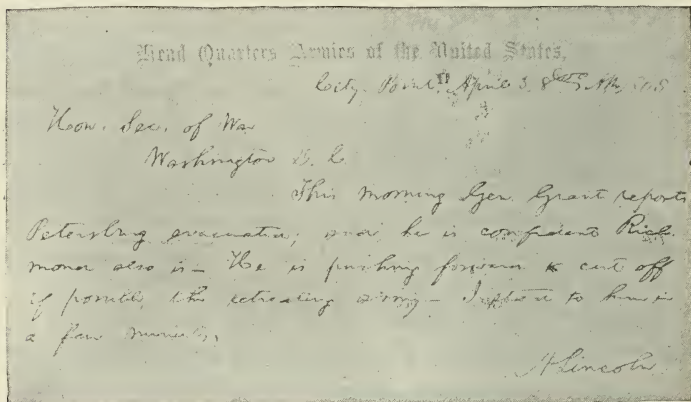 Head Quarters Armies of the United States,
City Point, April 3. 8 A.M.
Hon. Sec. of War
Washington D. C
This morning Gen. Grant reports
Petersburg evacuated; and he is confident Rich-
mond also is – He is pushing forward to cut off
if possible, the retreating army – I start to him in
a few minutes.
A Lincoln